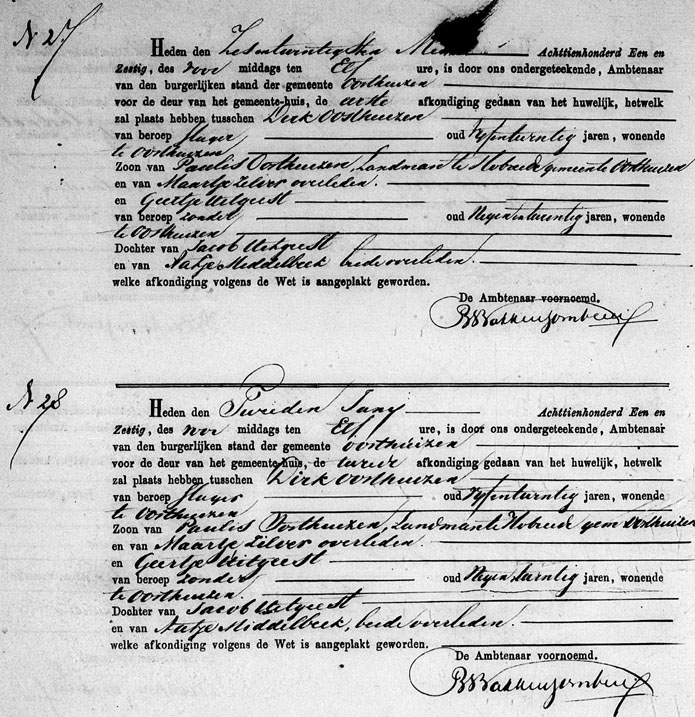 N 27
Heden den Zesentwintigsten Mei Achttienhonderd Een en
Zestig, des voor middags ten Elf ure, is door ons ondergeteekende, Ambtenaar
van den burgerlijken stand der gemeente Oosthuizen
voor de deur van het gemeente-huis, de eerste afkondiging gedaan van het huwelijk, hetwelk
zal plaats hebben tusschen Dirk Oosthuizen
van beroep slager oud vyfentwintig jaren, wonende
te Oosthuizen
Zoon van Paulis Oosthuizen, Landman te Hobrede gemeente Oosthuizen
en van Maartje Zilver overleden.
en Geertje Uitgeest
van beroep zonder oud Negenentwintig jaren, wonende
te Oosthuizen
Dochter van Jacob Uitgeest
en van Aatje Middelbeek beide overleden.
welke afkondiging volgens de Wet is aangeplakt geworden.
De Ambtenaar voornoemd.
N 28
Heden den Tweeden Juny Achttienhonderd Een en
Zestig, des voor middags ten Elf ure, is door ons ondergeteekende, Ambtenaar
van den burgerlijken stand der gemeente Oosthuizen
voor de deur van het gemeente-huis, de tweede afkondiging gedaan van het huwelijk, hetwelk
zal plaats hebben tusschen Dirk Oosthuizen
van beroep slager oud vyfentwintig jaren, wonende
te Oosthuizen
Zoon van Paulis Oosthuizen, Landman te Hobrede gem Oosthuizen
en van Maartje Zilver overleden.
en Geertje Uitgeest
van beroep zonder oud Negenentwintig jaren, wonende
te Oosthuizen.
Dochter van Jacob Uitgeest
en van Aatje Middelbeek, beide overleden.
welke afkondiging volgens de Wet is aangeplakt geworden.
De Ambtenaar voornoemd.